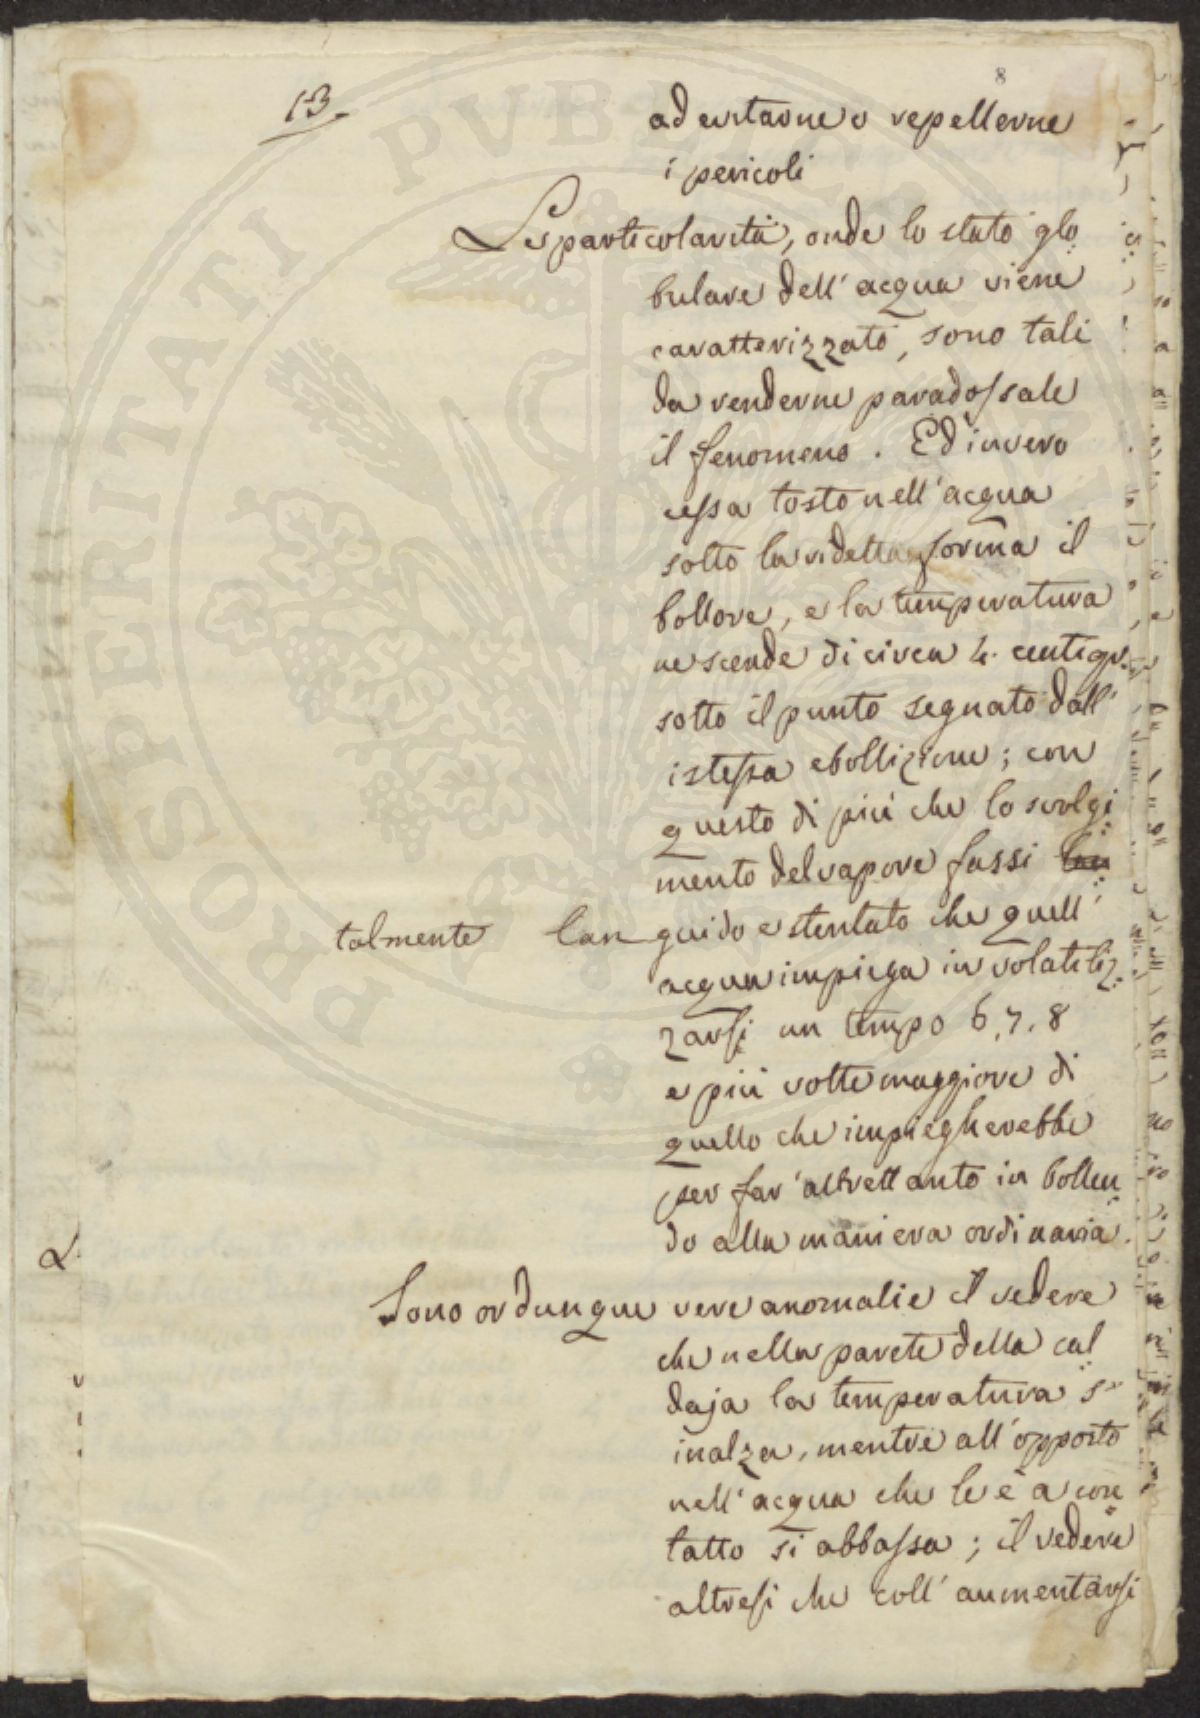 8
13.
ad evitarne o repellerne
i pericoli
Le particolarità, onde lo stato glo
bulare dell' acqua viene
caratterizzato, sono tali
da renderne paradossale
il fenomeno. Ed invero
cessa tosto nell' acqua
sotto la ridetta forma il
bollore, e la temperatura
ne scende di circa 4. centigr.
sotto il punto segnato dall'
istessa ebollizione; con
questo di più che lo svolgi
mento del vapore fassi lan
talmente lan guido e stentato che quell'
acqua impiega in volatiliz
zarsi un tempo 6, 7, 8
e più volte maggiore di
quello che impiegherebbe
per far' altrettanto in bollen
do alla maniera ordinaria.
Sono ordunque vere anomalie il vedere
che nella parete della cal
daja la temperatura s'
inalza, mentre all' opposto
nell' acqua che le è a con
tatto si abbassa; il vedere
altresi che coll' aumentarsi
PROSPERITATI PVBLICAE